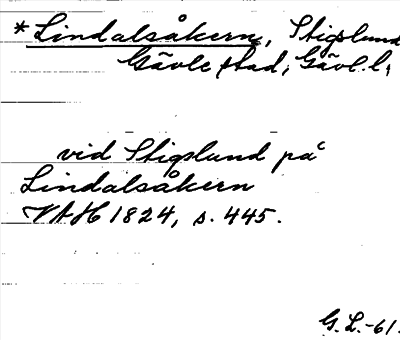 *Lindalsåkern, Stigslund
Gävle stad, Gävl. l.
vid Stigslund på
Lindalsåkern
VAH 1824, s. 445.
G. L. -61.